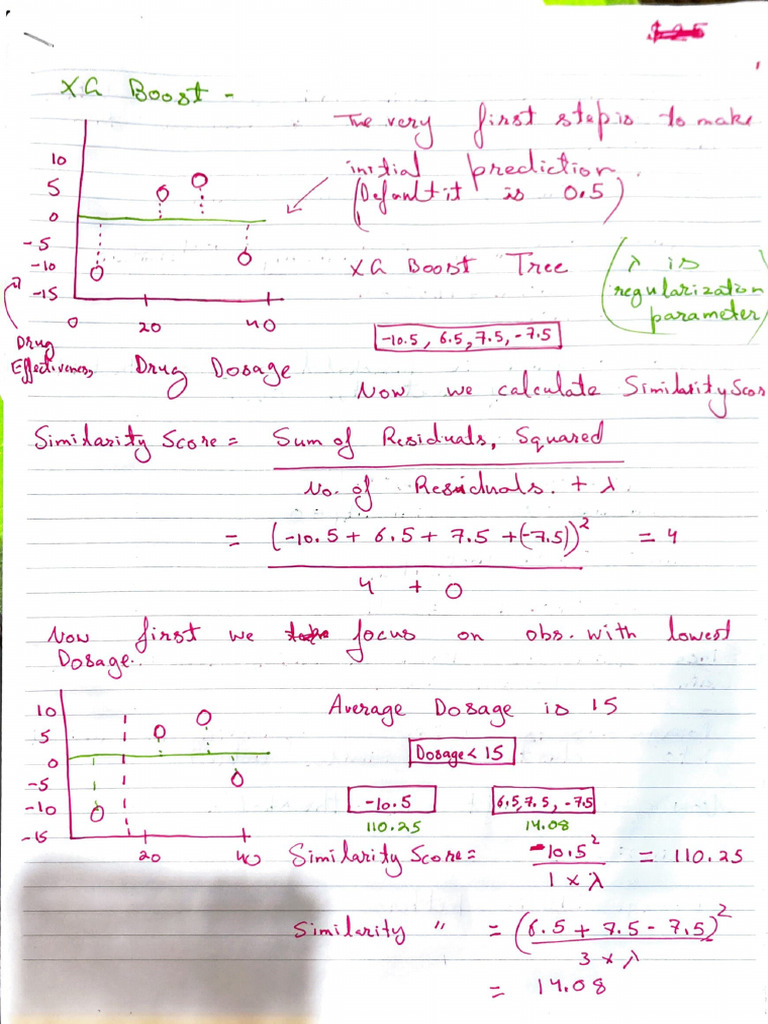 XG Boost -
The very first step is to make
initial prediction.
(Default it is 0.5)
10
5
0
-5
-10
-15
0 20 40
Drug
Effectiveness
Drug Dosage
XG Boost Tree
(λ is
regularization
parameter)
-10.5, 6.5, 7.5, -7.5
Now we calculate Similarity Scor
Similarity Score = Sum of Residuals, Squared
No. of Residuals. + λ
= (-10.5 + 6.5 + 7.5 + (-7.5))² = 4
4 + 0
Now first we focus on obs. with lowest
Dosage.
10
5
0
-5
-10
-15
20 40
Average Dosage is 15
Dosage < 15
-10.5 6.5, 7.5, -7.5
110.25 14.08
Similarity Score = -10.5² = 110.25
1 × λ
Similarity " = (6.5 + 7.5 - 7.5)²
3 × λ
= 14.08